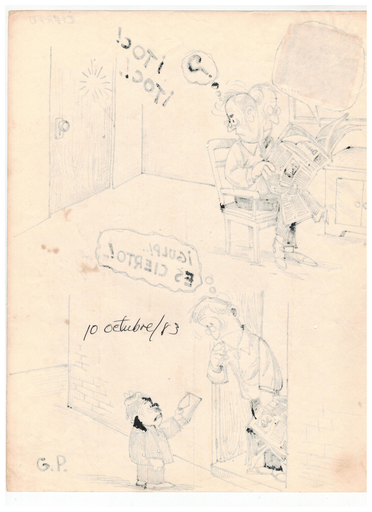 ¡TOC!
¡TOC!..
¡GULP!..
ES CIERTO!..
10 octubre/83
G.P.